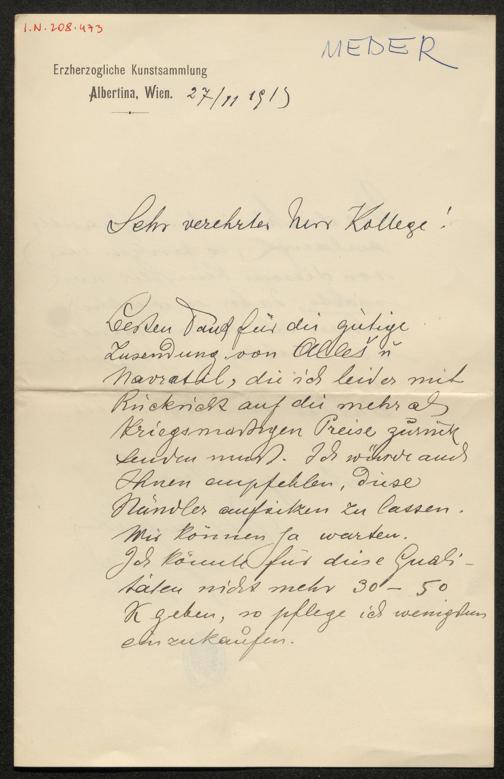 I.N. 208.473
MEDER
Erzherzogliche Kunstsammlung
Albertina, Wien. 27/11 1915
Sehr verehrter Herr Kollege!
Besten Dank für die gütige
Zusendung von u
Navratil, die ich leider mit
Rücksicht auf die mehr als
Kriegsmässigen Preise zurück
senden muss. Ich würde auch
Ihnen empfehlen, diese
Händler aufsitzen zu lassen.
Wir können ja warten.
Ich könnte für diese Quali-
täten nicht mehr 30 – 50
K geben, so pflege ich wenigstens
einzukaufen.